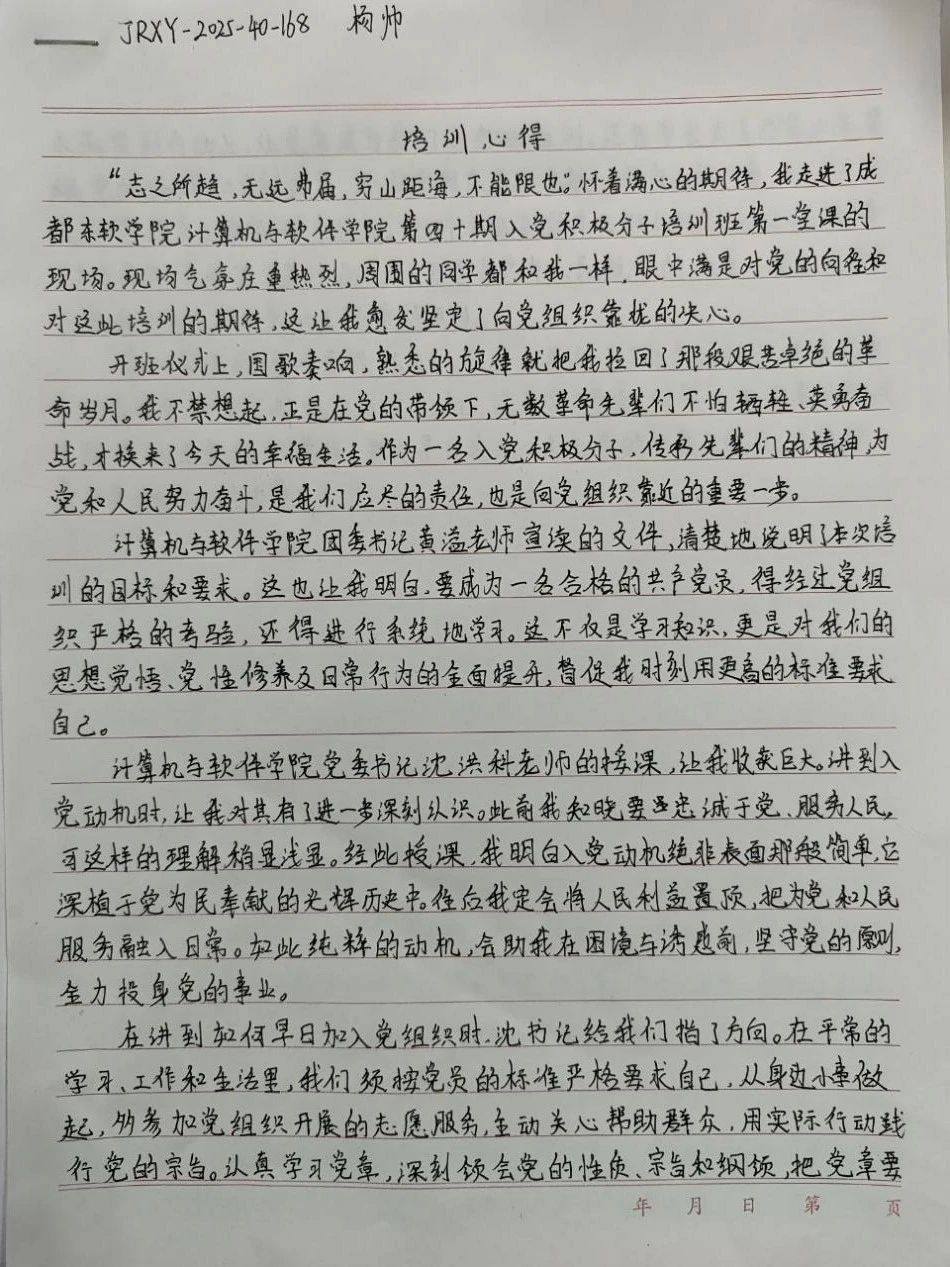 JRXY-2025-40-168 杨帅
培训心得
“志之所趋,无远弗届,穷山距海,不能限也。”怀着满心的期待,我走进了成
都东软学院计算机与软件学院第四十期入党积极分子培训班第一堂课的
现场。现场气氛庄重热烈,周围的同学都和我一样,眼中满是对党的向往和
对这此培训的期待,这让我愈发坚定了向党组织靠拢的决心。
开班仪式上,国歌奏响,熟悉的旋律就把我拉回了那段艰苦卓绝的革
命岁月。我不禁想起,正是在党的带领下,无数革命先辈们不怕牺牲、英勇奋
战,才换来了今天的幸福生活。作为一名入党积极分子,传承先辈们的精神,为
党和人民努力奋斗,是我们应尽的责任,也是向党组织靠近的重要一步。
计算机与软件学院团委书记黄溢老师宣读的文件,清楚地说明了本次培
训的目标和要求。这也让我明白,要成为一名合格的共产党员,得经过党组
织严格的考验,还得进行系统地学习。这不仅是学习知识,更是对我们的
思想觉悟、党性修养及日常行为的全面提升,督促我时刻用更高的标准要求
自己。
计算机与软件学院党委书记沈洪科老师的授课,让我收获巨大。讲到入
党动机时,让我对其有了进一步深刻认识。此前我知晓要忠诚于党、服务人民,
可这样的理解稍显浅显。经此授课,我明白入党动机绝非表面那般简单,它
深植于党为民奉献的光辉历史中。往后我定会将人民利益置顶,把为党和人民
服务融入日常。如此纯粹的动机,会助我在困境与诱惑前,坚守党的原则,
全力投身党的事业。
在讲到如何早日加入党组织时,沈书记给我们指了方向。在平常的
学习、工作和生活里,我们须按党员的标准严格要求自己,从身边小事做
起,多参加党组织开展的志愿服务,主动关心帮助群众,用实际行动践
行党的宗旨。认真学习党章,深刻领会党的性质、宗旨和纲领,把党章要
年 月 日 第 页